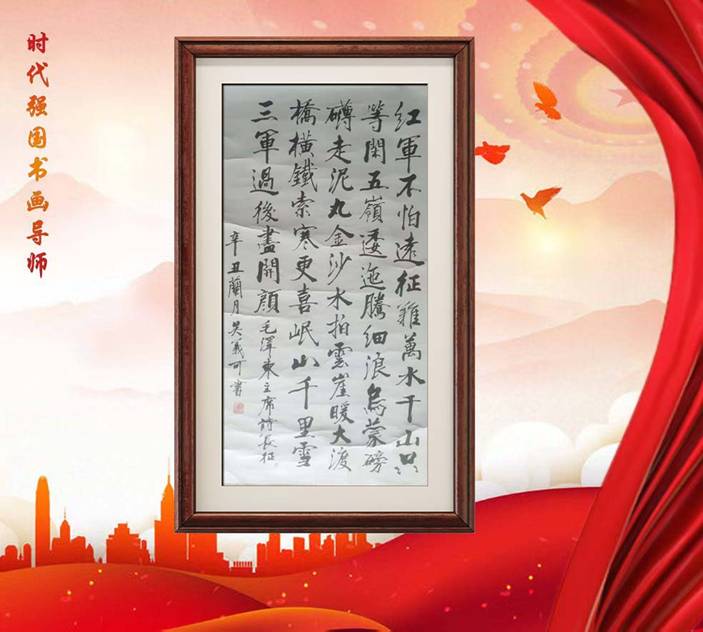 时代强国书画导师
红軍不怕遠征難萬水千山只
等閑五嶺逶迤騰細浪烏蒙磅
礴走泥丸金沙水拍雲崖暖大渡
橋横鐵索寒更喜岷山千里雪
三軍過後盡開顔 毛澤東主席詩長征
辛丑蘭月吴義可書